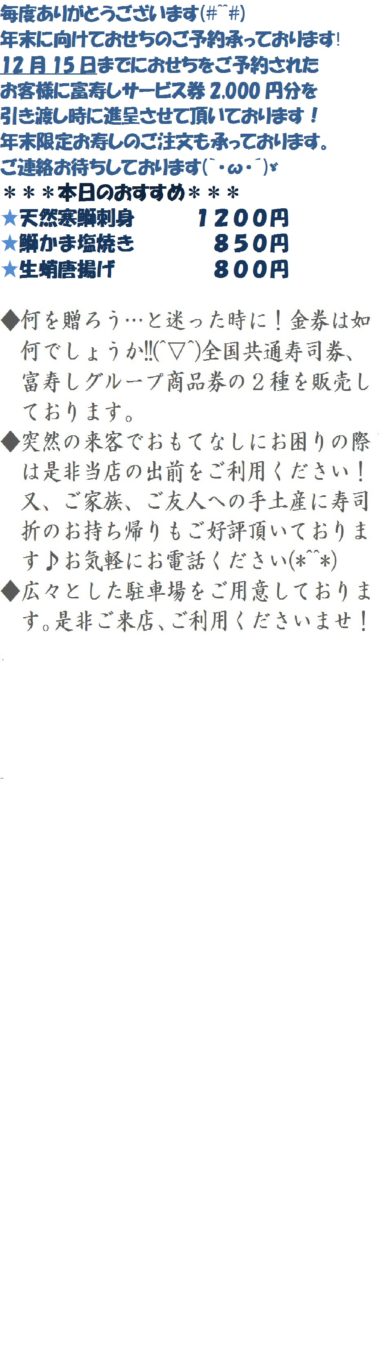 毎度ありがとうございます(#^^#)
年末に向けておせちのご予約承っております!
12月15日までにおせちをご予約された
お客様に富寿しサービス券2.000円分を
引き渡し時に進呈させて頂いております！
年末限定お寿しのご注文も承っております。
ご連絡お待ちしております(`･ω･´)ゞ
＊＊＊本日のおすすめ＊＊＊
★天然寒鰤刺身　　　１２００円
★鰤かま塩焼き　　　　８５０円
★生蛸唐揚げ　　　　　８００円
◆何を贈ろう…と迷った時に！金券は如
何でしょうか!!(^▽^)全国共通寿司券、
富寿しグループ商品券の２種を販売し
ております。
◆突然の来客でおもてなしにお困りの際
は是非当店の出前をご利用ください！
又、ご家族、ご友人への手土産に寿司
折のお持ち帰りもご好評頂いておりま
す♪お気軽にお電話ください(*^^*)
◆広々とした駐車場をご用意しておりま
す。是非ご来店、ご利用くださいませ！